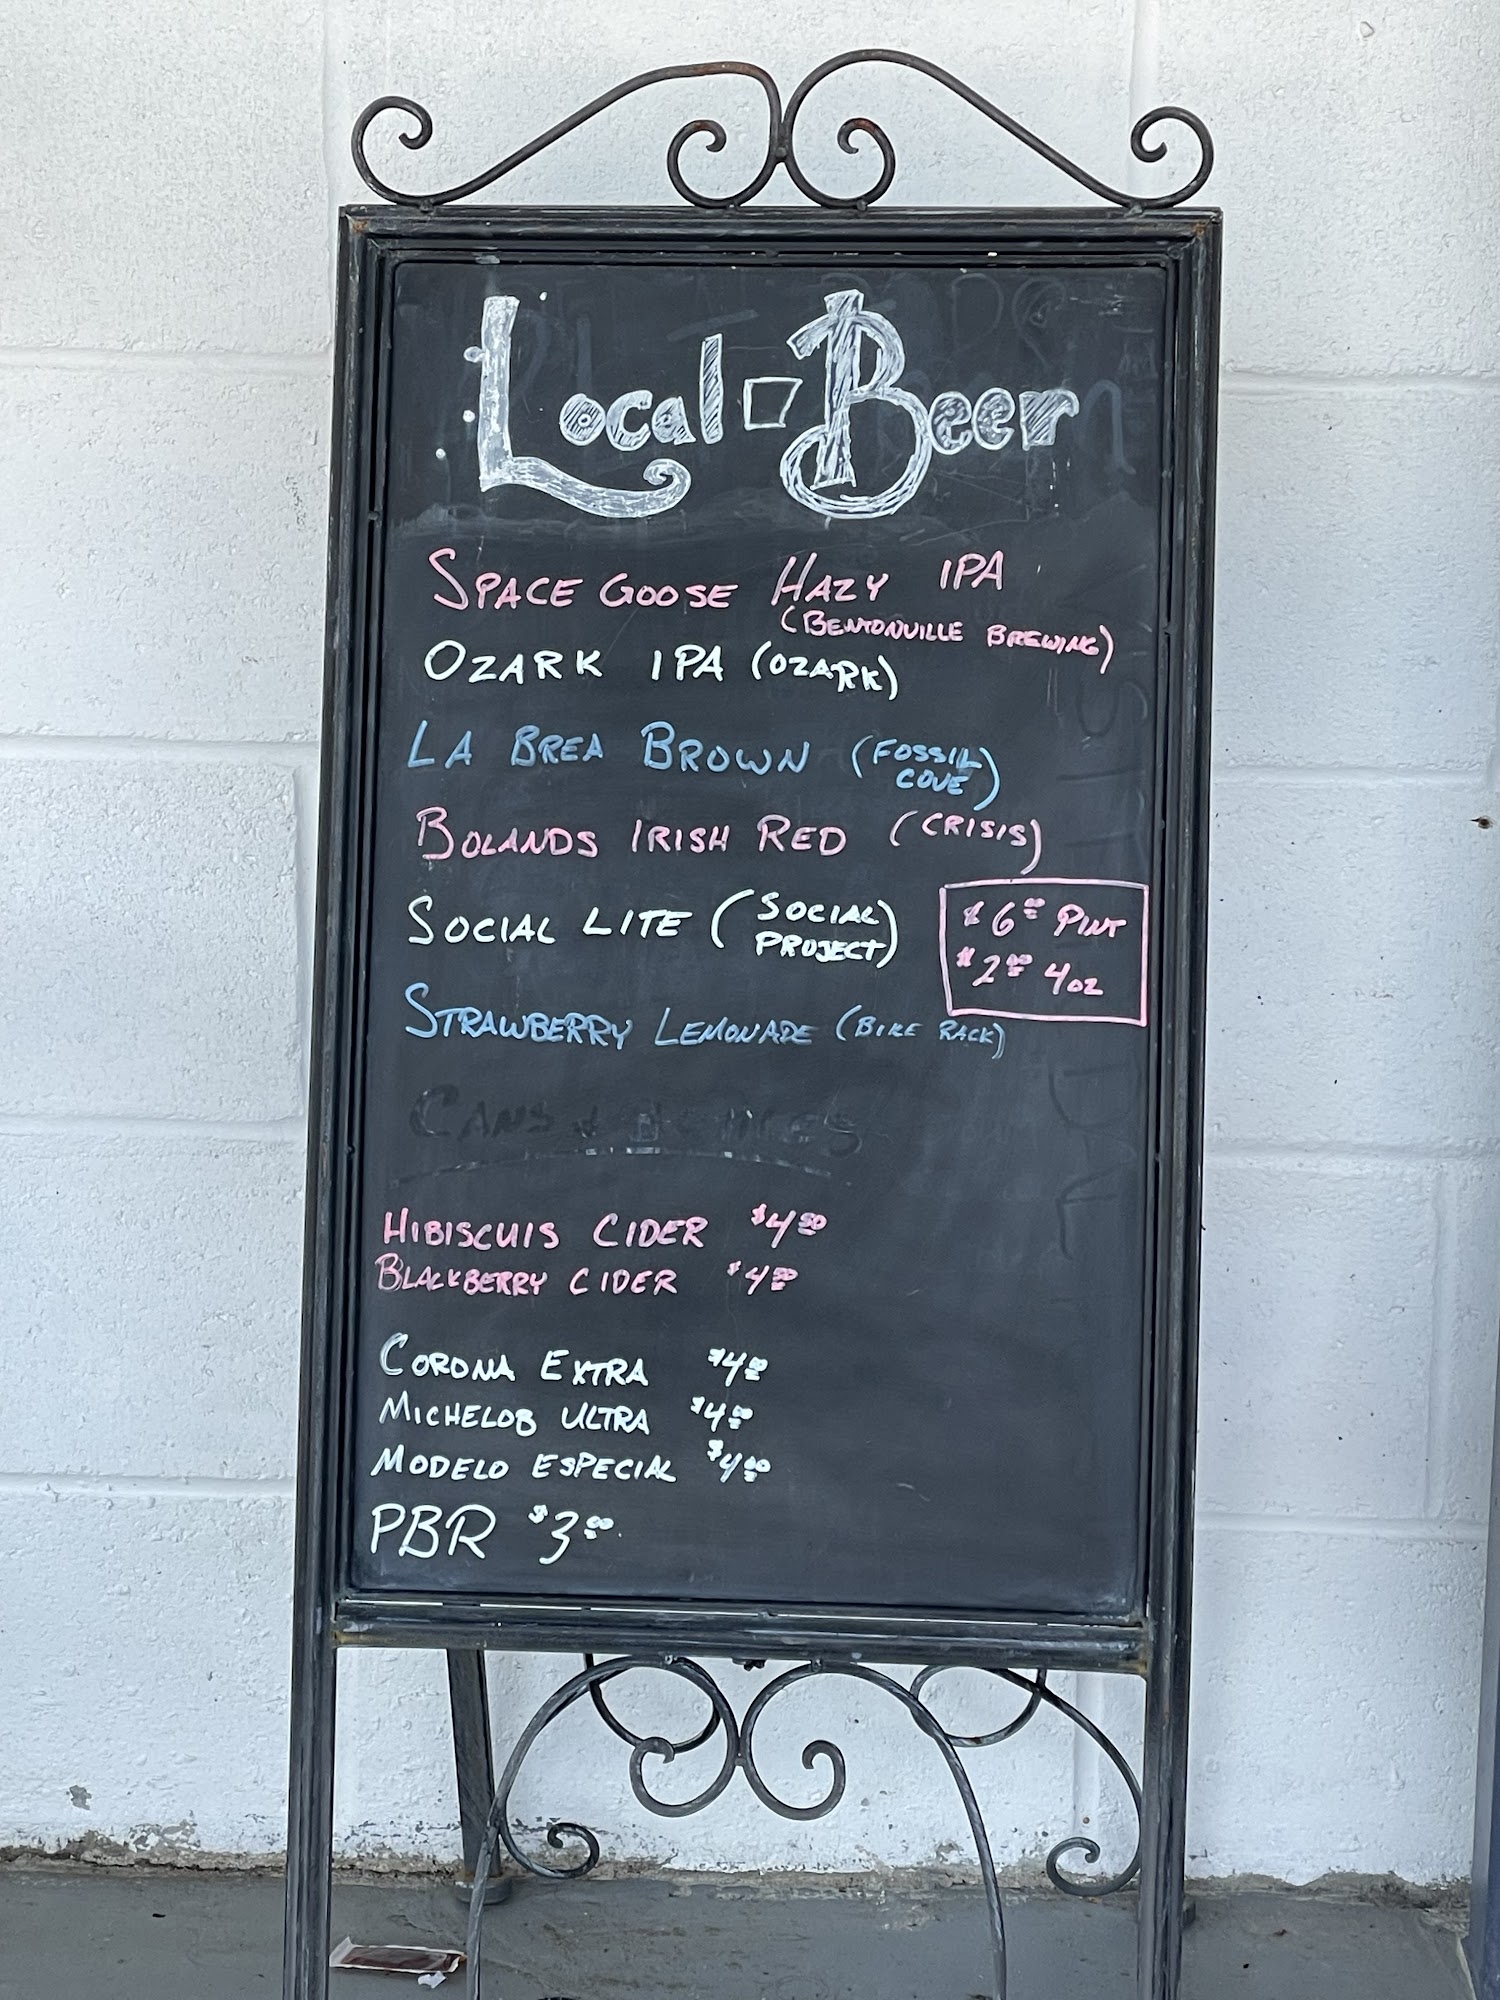 Local - Beer
SPACE GOOSE HAZY IPA
(BENTONVILLE BREWING)
OZARK IPA (OZARK)
LA BREA BROWN (FOSSIL
COVE)
BOLANDS IRISH RED (CRISIS)
SOCIAL LITE (SOCIAL
PROJECT)
$6.00 PINT
$2.00 4oz
STRAWBERRY LEMONADE (BIKE RACK)
CANS & BOTTLES
HIBISCUIS CIDER $4.50
BLACKBERRY CIDER $4.50
CORONA EXTRA $4.00
MICHELOB ULTRA $4.00
MODELO ESPECIAL $4.00
PBR $3.00